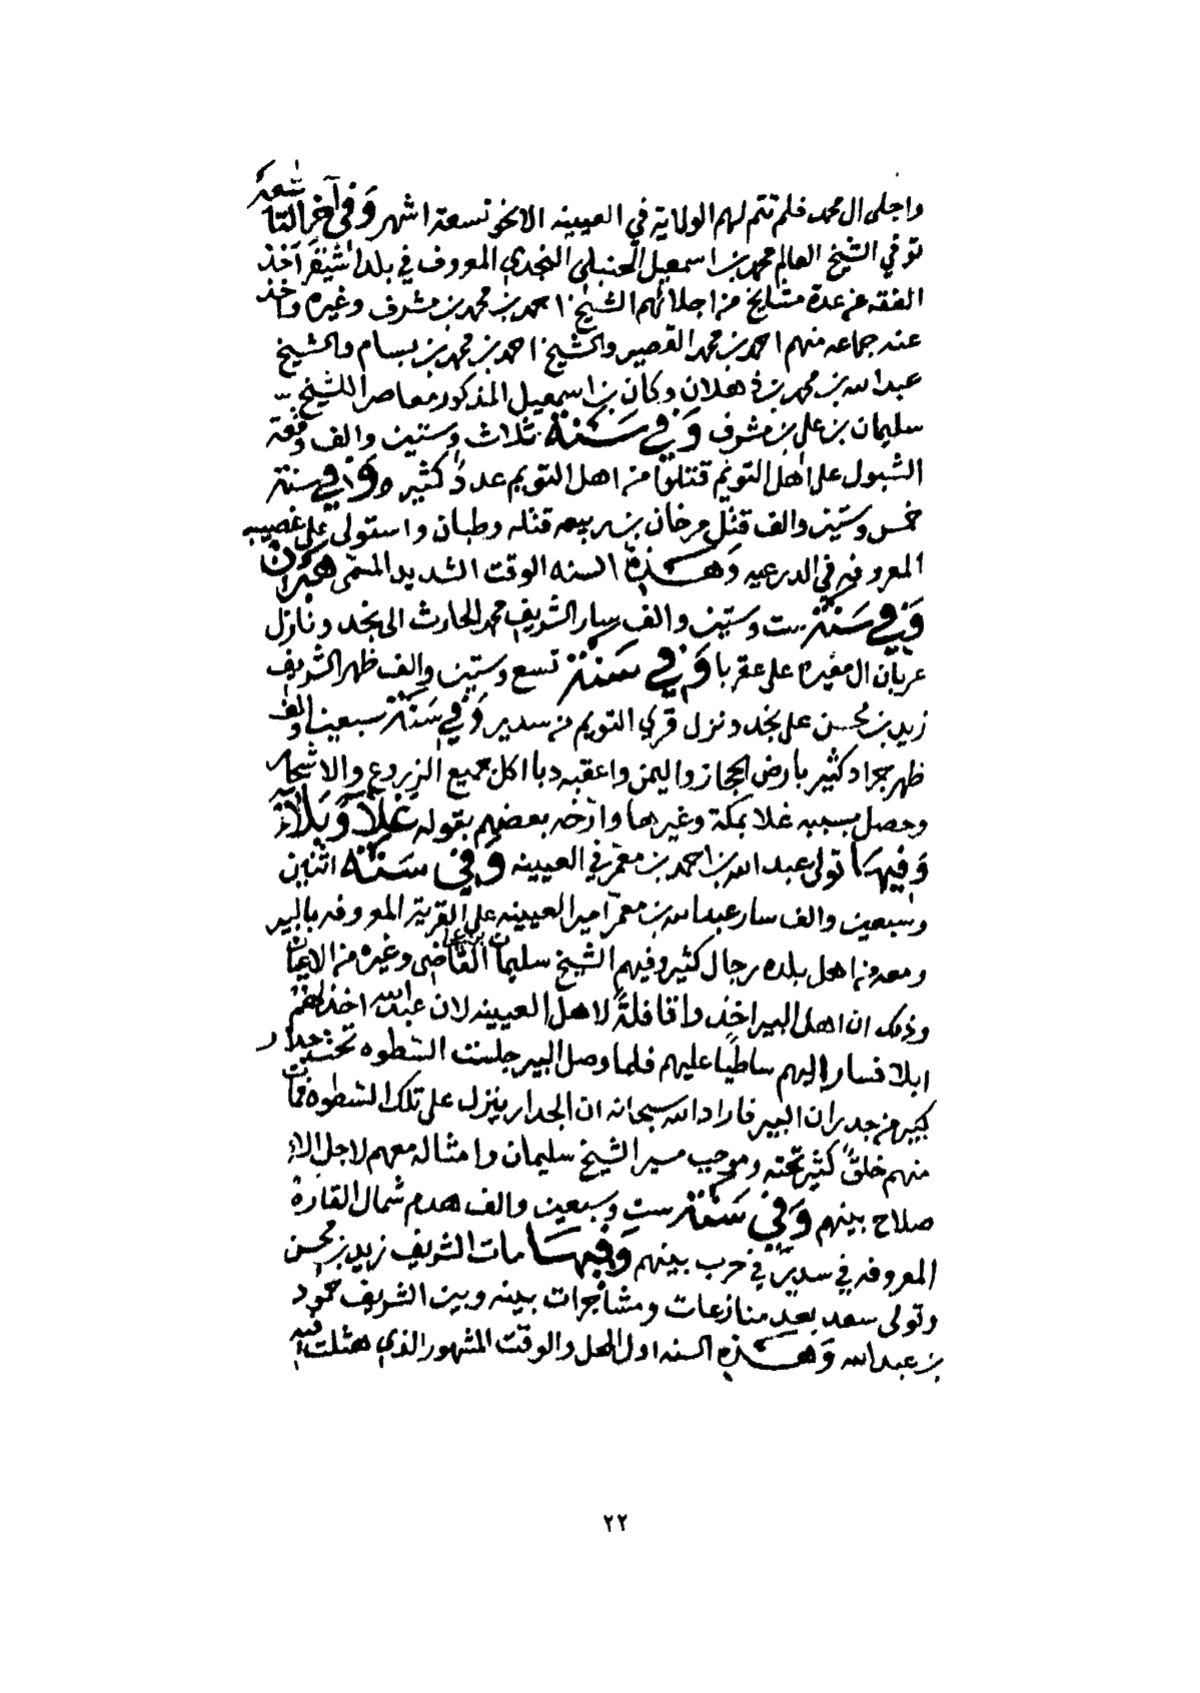 واجلى ال محمد فلم تتم لهم الولاية في العيينه الا نحو تسعة اشهر وفي آخر التاسعة
توفي الشيخ العالم محمد بن اسمعيل الحنبلي النجدي المعروف في بلد اشيقر اخذ
الفقه عن عدة مشايخ من اجلائهم الشيخ احمد بن محمد بن مشرف وغيره واخذ
عنه جماعه منهم احمد بن محمد القصير والشيخ احمد بن محمد بن بسام والشيخ
عبدالله بن محمد بن ذهلان وكان بن اسمعيل المذكور معاصرا للشيخ
سليمان بن علي بن مشرف وفي سنة ثلاث وستين والف وقعة
الشبول على اهل التويم قتلوا من اهل التويم عدد كثير وفي سنة
خمس وستين والف قتل مرخان بن ربيعه قتله وطبان واستولى على غصيبه
المعروفه في الدرعيه وهذه السنه الوقت الشديد المسمى هبران
وفي سنة ست وستين والف سار الشريف محمد الحارث الى نجد ونازل
عربان ال مغيره على عقربا وفي سنة تسع وستين والف ظهر الشريف
زيد بن محسن على نجد ونزل قرى التويم من سدير وفي سنة سبعين والف
ظهر جراد كثير بارض الحجاز واليمن واعقبه دبا اكل جميع الزروع والاشجار
وحصل بسببه غلا بمكة وغيرها وارخه بعضهم بقوله غلا وبلاء
وفيها تولى عبدالله بن احمد بن معمر في العيينه وفي سنة اثنين
وسبعين والف سار عبدالله بن معمر امير العيينه على القرية المعروفه بالبير
ومعه من اهل بلده رجال كثير وفيهم الشيخ سليمان بن علي القاضي وغيره من الاعيان
وذلك ان اهل البير اخذوا قافلة لاهل العيينه لان عبدالله اخذ لهم
ابلا فسار اليهم ساطيا عليهم فلما وصل البير جلست الشطوه تحت جدار
كبير من جدران البير فاراد الله سبحانه ان الجدار ينزل على تلك الشطوه فمات
منهم خلق كثير تحته وموجب مسير الشيخ سليمان وامثاله معهم لاجل الا
صلاح بينهم وفي سنة ست وسبعين والف هدم شمال القارة
المعروفه في سدير في حرب بينهم وفيها مات الشريف زيد بن محسن
وتولى سعد بعد منازعات ومشاجرات بينه وبين الشريف حمود
بن عبدالله وهذه السنه اول المحل والوقت المشهور الذي هثلت فيه
٢٢